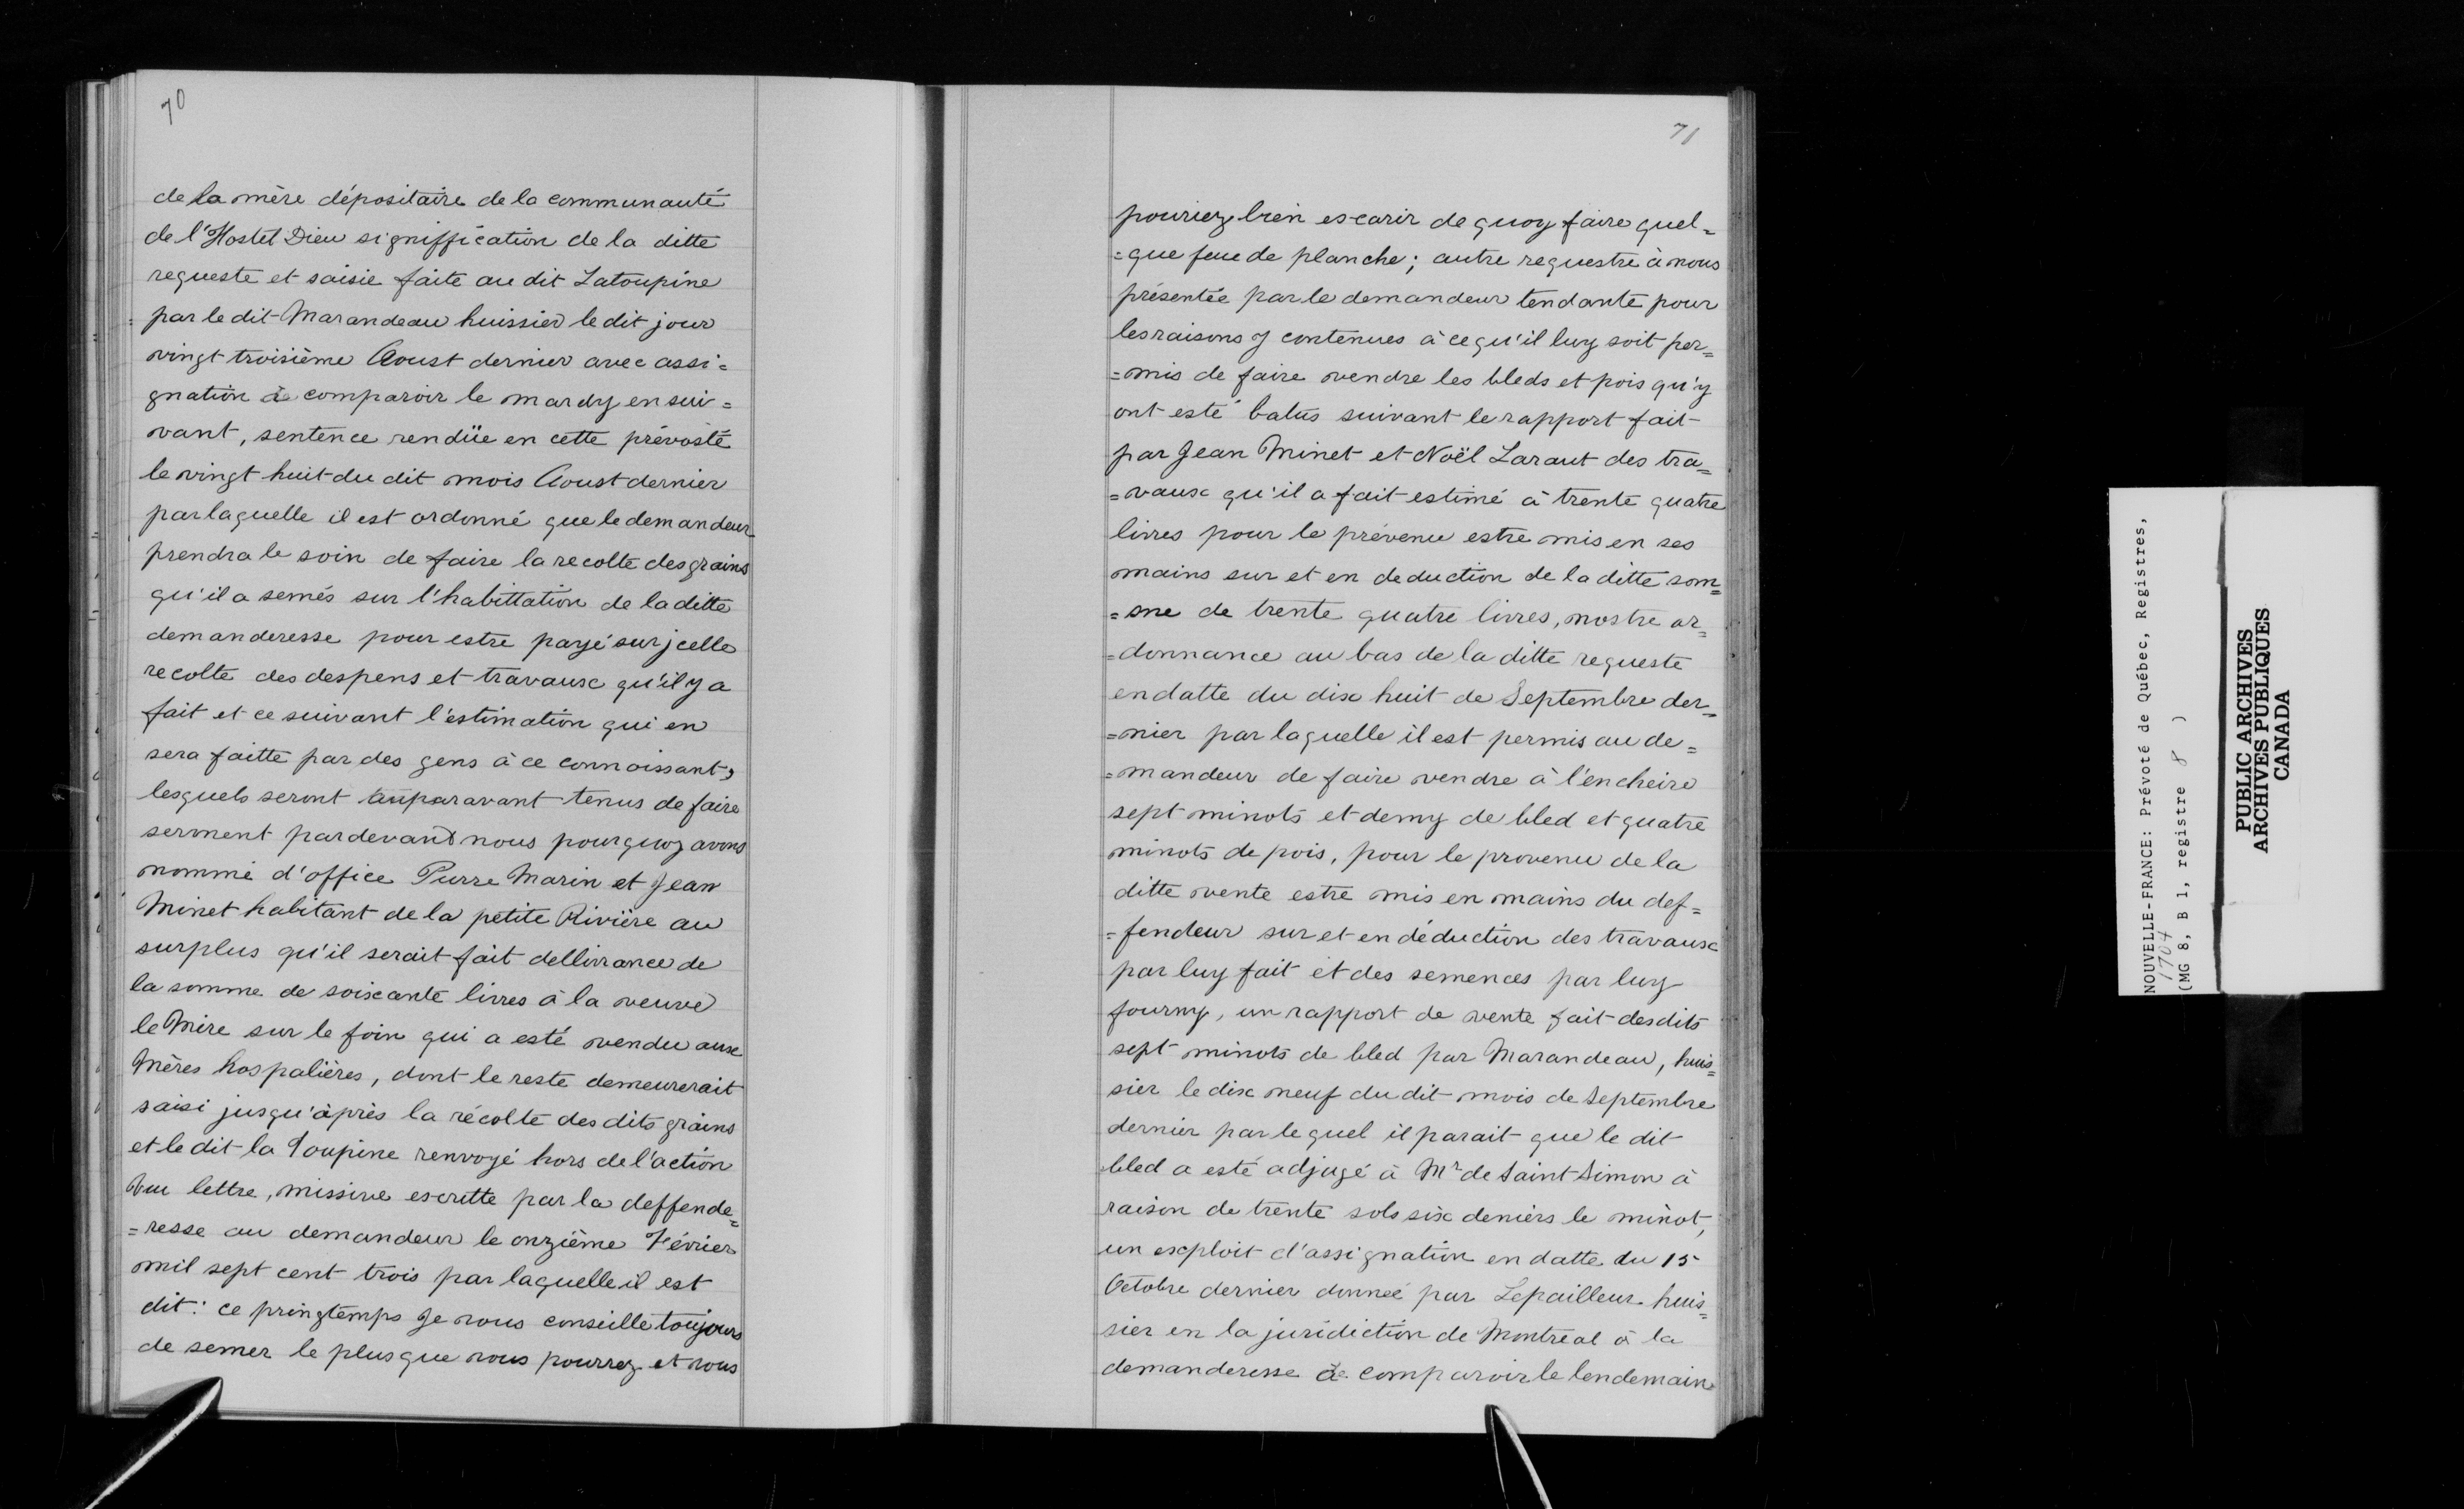 70
de la mère dépositaire de la communauté
de l'Hostel Dieu signiffication de la ditte
requeste et saisie faite au dit Latoupine
par le dit Marandeau huissier le dit jour
vingt troisième Aoust dernier avec assi=
gnation à comparoir le mardy ensui=
vant, sentence rendüe en cette prévosté
le vingt huit du dit mois Aoust dernier
par laquelle il est ordonné que le demandeur
prendra le soin de faire la recolte des grains
qu'il a semés sur l'habittation de la ditte
demanderesse pour estre payé sur jcelle
recolte des despens et travaux qu'il y a
fait et ce suivant l'estimation qui en
sera faitte par des gens à ce connoissant,
lesquels seront auparavant tenus de faire
serment pardevant nous pourquoy avons
nommé d'office Pierre Marin et Jean
Minet habitant de la petite Rivière au
surplus qu'il serait fait dellivrance de
la somme de soixante livres à la veuve
le Mire sur le foin qui a esté vendu aux
Mères hospalières, dont le reste demeurerait
saisi jusqu'àprès la récolte des dits grains
et le dit la Toupine renvoyé hors de l'action
Vue lettre, missive escritte par la deffende=
=resse au demandeur le onzième Février
mil sept cent trois par laquelle il est
dit: ce pringtemps je vous conseille toujours
de semer le plus que vous pourrez et vous
71
pouriez bien escarir de quoy faire quel=
=que feue de planche; autre requestre à nous
présentée par le demandeur tendante pour
les raisons y contenues à ce qu'il luy soit per=
=mis de faire vendre les bleds et pois qu'y
ont esté batus suivant le rapport fait
par Jean Minet et Noël Laraut des tra=
=vaux qu'il a fait estimé à trente quatre
livres pour le prévenu estre mis en ses
mains sur et en deduction de la ditte som=
=me de trente quatre livres, nostre or=
=donnance au bas de la ditte requeste
en datte du dix huit de Septembre der=
=nier par laquelle il est permis au de=
=mandeur de faire vendre à l'encheire
sept minots et demy de bled et quatre
minots de pois, pour le provenu de la
ditte vente estre mis en mains du def=
=fendeur sur et en déduction des travaux
par luy fait et des semences par luy
fourny, un rapport de vente fait desdits
sept minots de bled par Marandeau, huis=
sier le dix neuf du dit mois de Septembre
dernier par lequel il parait que le dit
bled a esté adjugé à Mr de Saint Simon à
raison de trente sols six deniers le minot,
un exploit d'assignation en datte du 15
Octobre dernier donneé par Lepailleur huis=
sier en la juridiction de Montréal à la
demanderesse de comparoir le lendemain
NOUVELLE-FRANCE: Prévoté de Québec, Registres,
1704
(MG 8, B 1, registre 8 )
PUBLIC ARCHIVES
ARCHIVES PUBLIQUES
CANADA